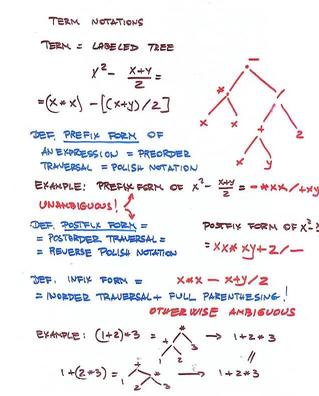 TERM NOTATIONS
TERM = LABELED TREE
x² - x+y/2 =
= (x*x) - [(x+y)/2]
-
* /
x x + 2
x y
DEF. PREFIX FORM OF
AN EXPRESSION = PREORDER
TRAVERSAL = POLISH NOTATION
EXAMPLE: PREFIX FORM OF x² - x+y/2 = -*xx/+xy2
UNAMBIGUOUS!
DEF. POSTFIX FORM = POSTFIX FORM OF x²-
= POSTORDER TRAVERSAL = = xx* xy+2/-
= REVERSE POLISH NOTATION
DEF. INFIX FORM = x*x - x+y/2
= INORDER TRAVERSAL + FULL PARENTHESING!
OTHERWISE AMBIGUOUS
EXAMPLE: (1+2)*3 = → 1+2*3
*
+ 3
1 2
//
1+(2*3) = → 1+2*3
+
1 *
2 3